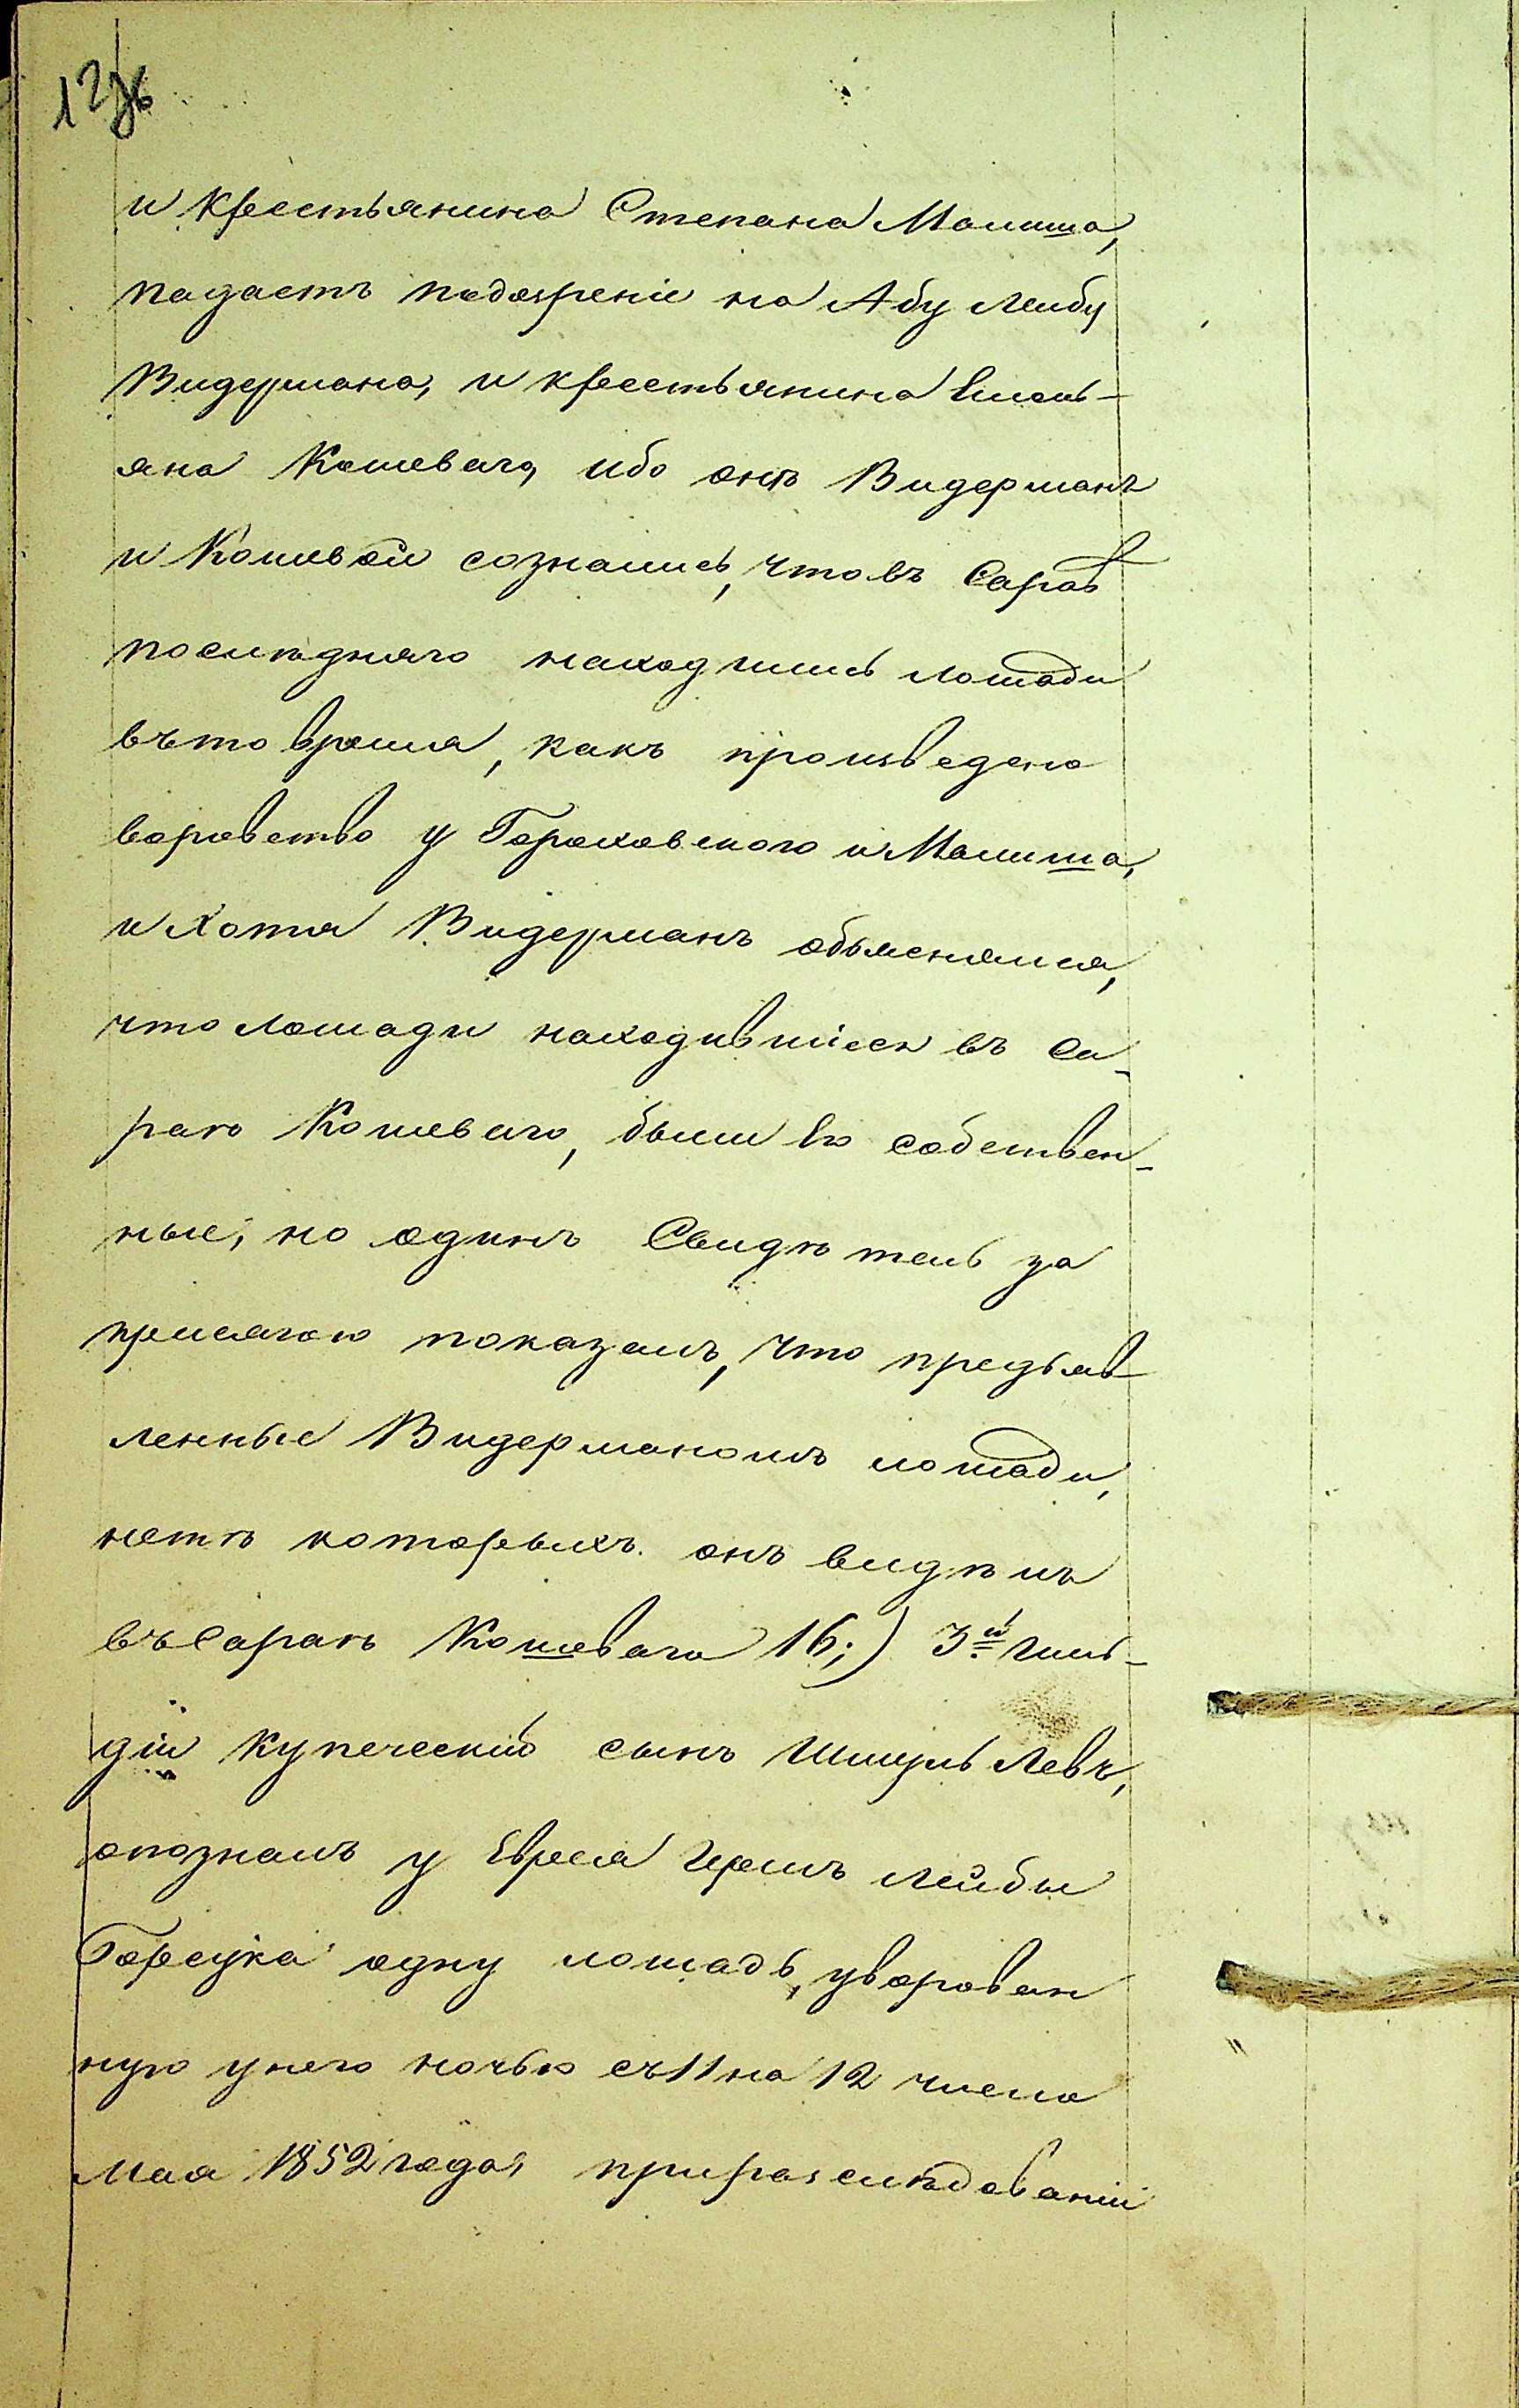 12об
и крестьянина Степана Малиша,
падаетъ подозреніе на Абу Лейбу
Видермана, и крестьянина Емель-
яна Кошеваго, ибо онъ Видерманъ
и Кошевой сознались, что въ Сараѣ
последняго находились лошади
въ то время, какъ произведено
воровство у Гороховского и Малиша,
и хотя Видерманъ объяснялся,
что лошади находившіеся въ Са-
раѣ Кошеваго, были Его собствен-
ные, но одинъ Свидѣтель за
присягою показалъ, что предъяв-
ленные Видерманомъ лошади,
нетѣ которыхъ онъ видѣлъ
въ Сараѣ Кошеваго 16;) 3й гиль-
діи купеческій сынъ Шмуль Левъ,
опозналъ у Еврея Гершъ Лейбы
одну лошадь, уворован
ную у него ночью съ 11 на 12 число
Мая 1852 года, при разслѣдованіи